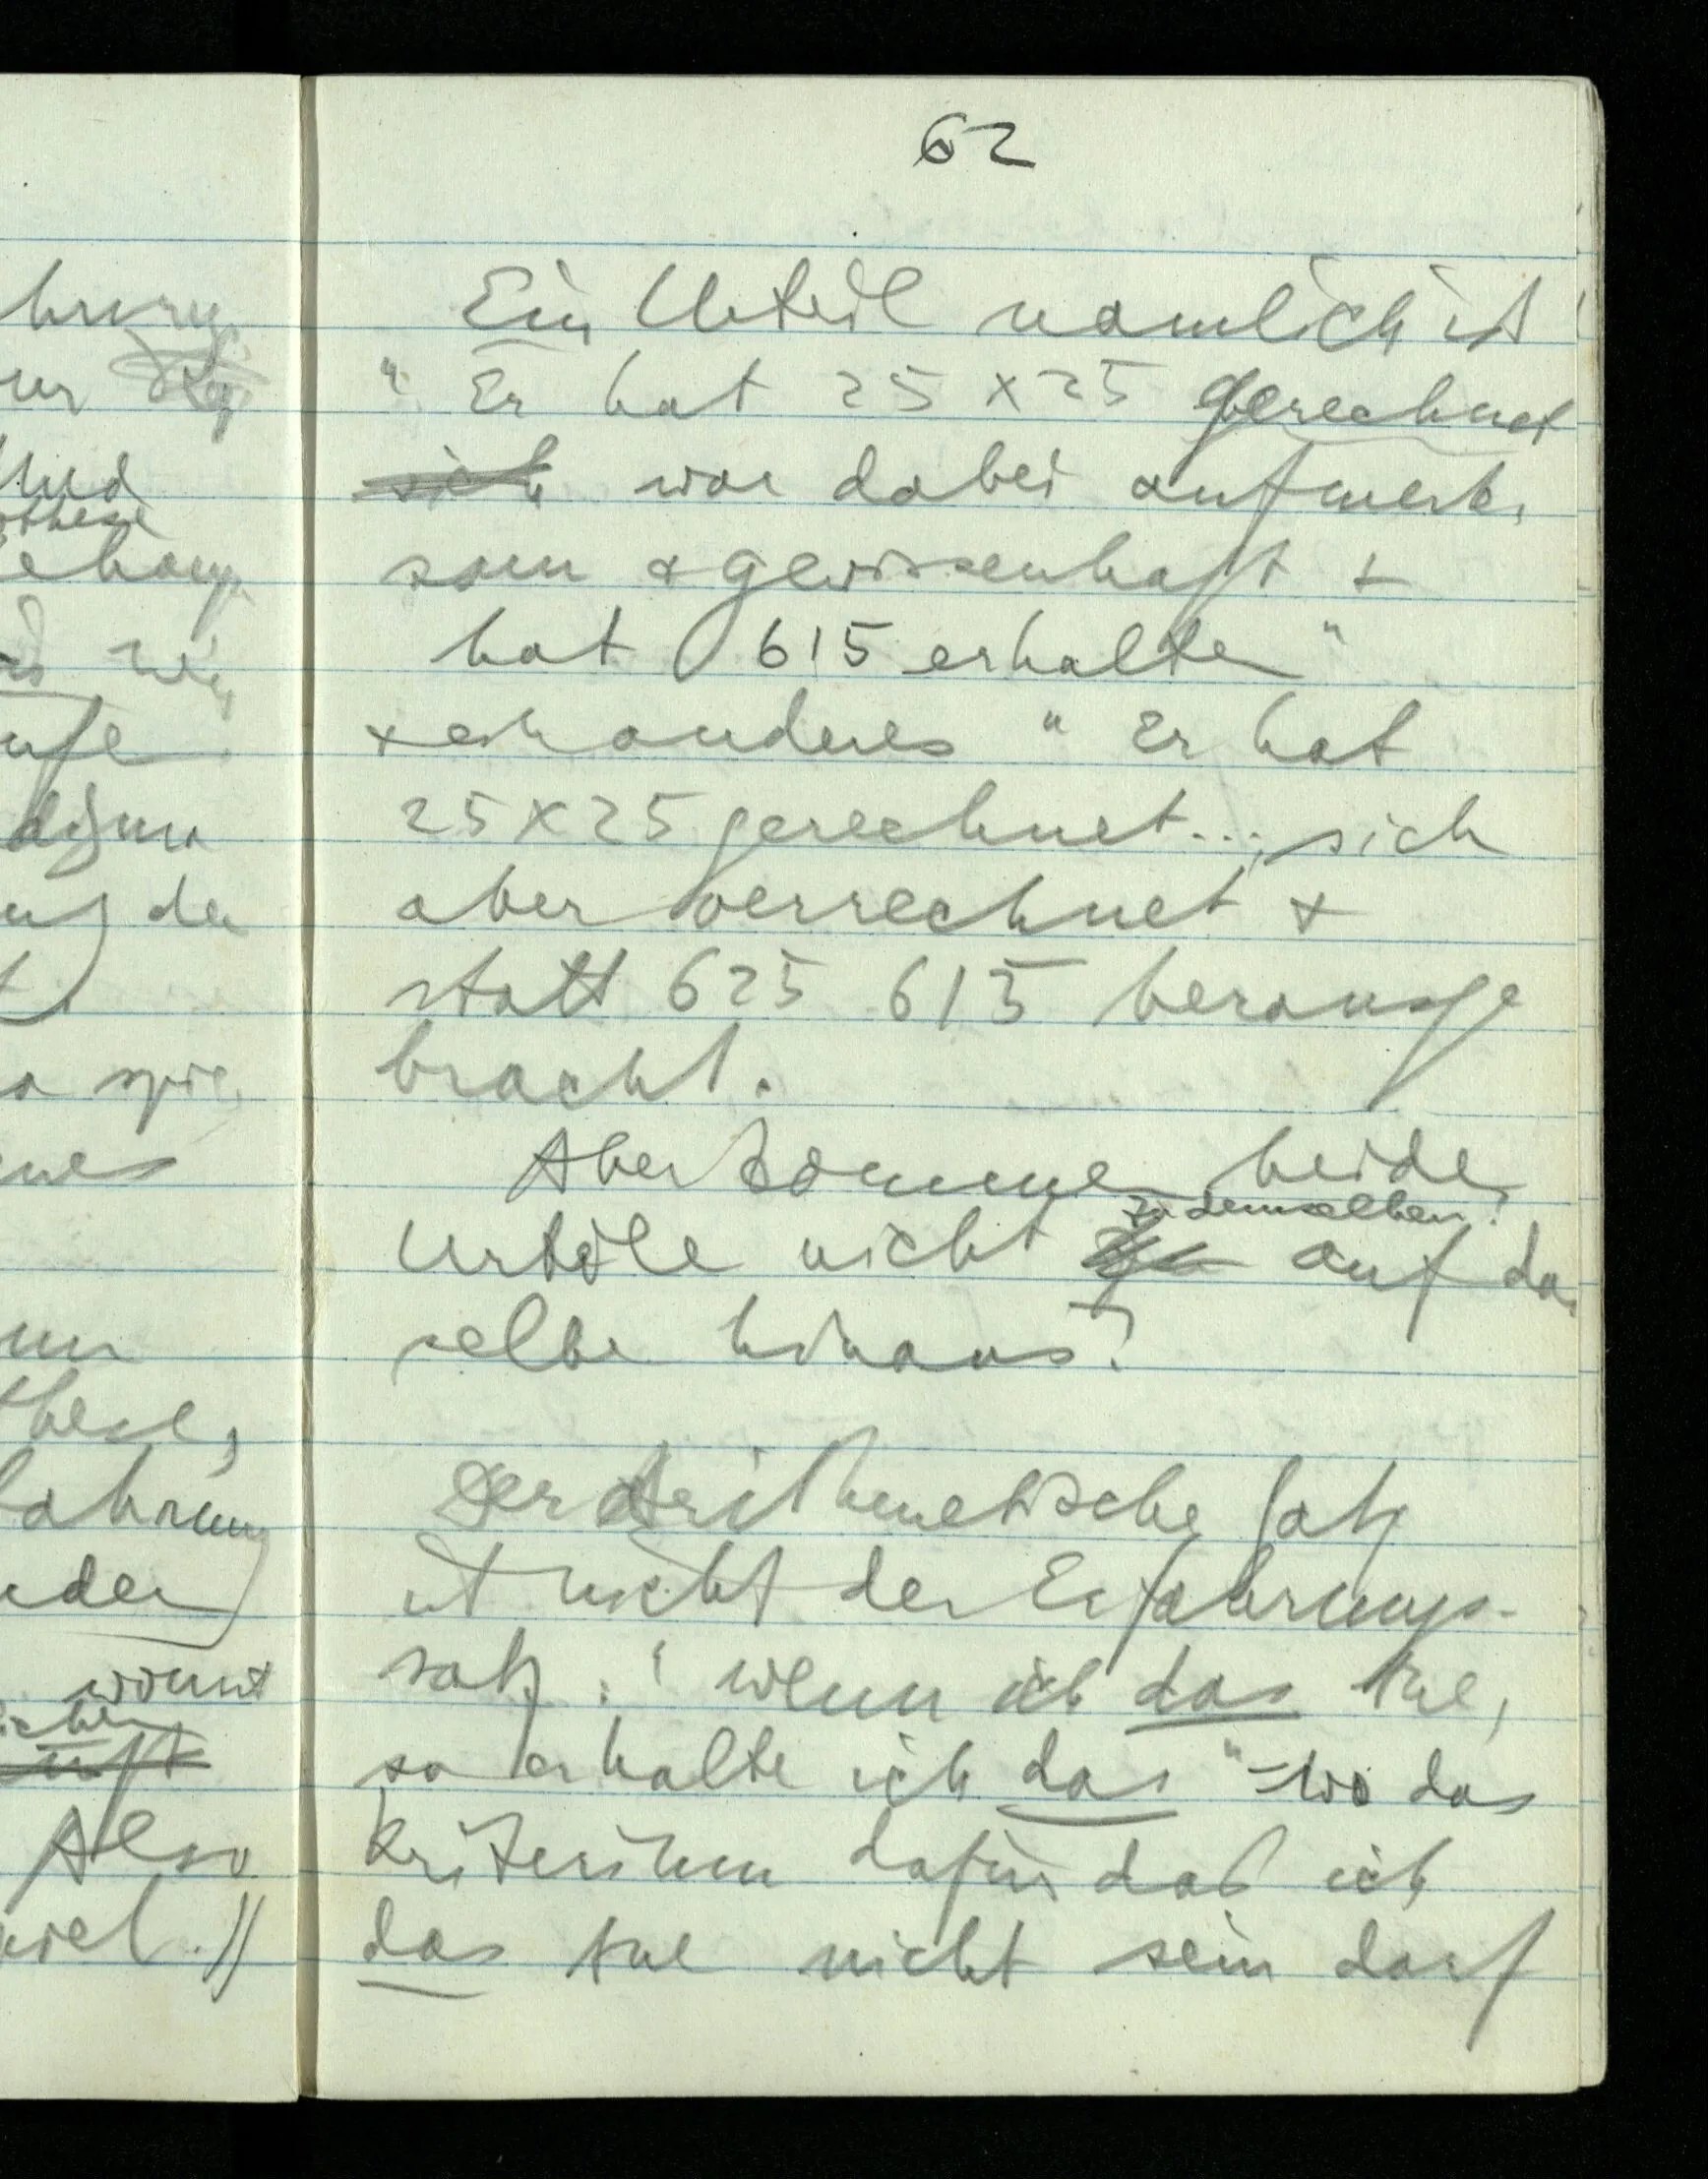 62
Ein Urteil nämlich ist
" Er hat 25 x 25 gerechnet
sich war dabei aufmerk-
sam & gewissenhaft &
hat 615 erhalten"
& ein anderes " Er hat
25 x 25 gerechnet..., sich
aber verrechnet &
statt 625 615 herausge
bracht.
Aber kommen beide
zu demselben
Urteile nicht auf das
selbe hinaus?
Der arithmetische Satz
ist nicht der Erfahrungs-
satz: "wenn ich das tue,
so erhalte ich das" – wo das
Kriterium dafür daß ich
das tue nicht sein darf
und
these
ufe
digma
der
these,
ahrung
nimmt
Also